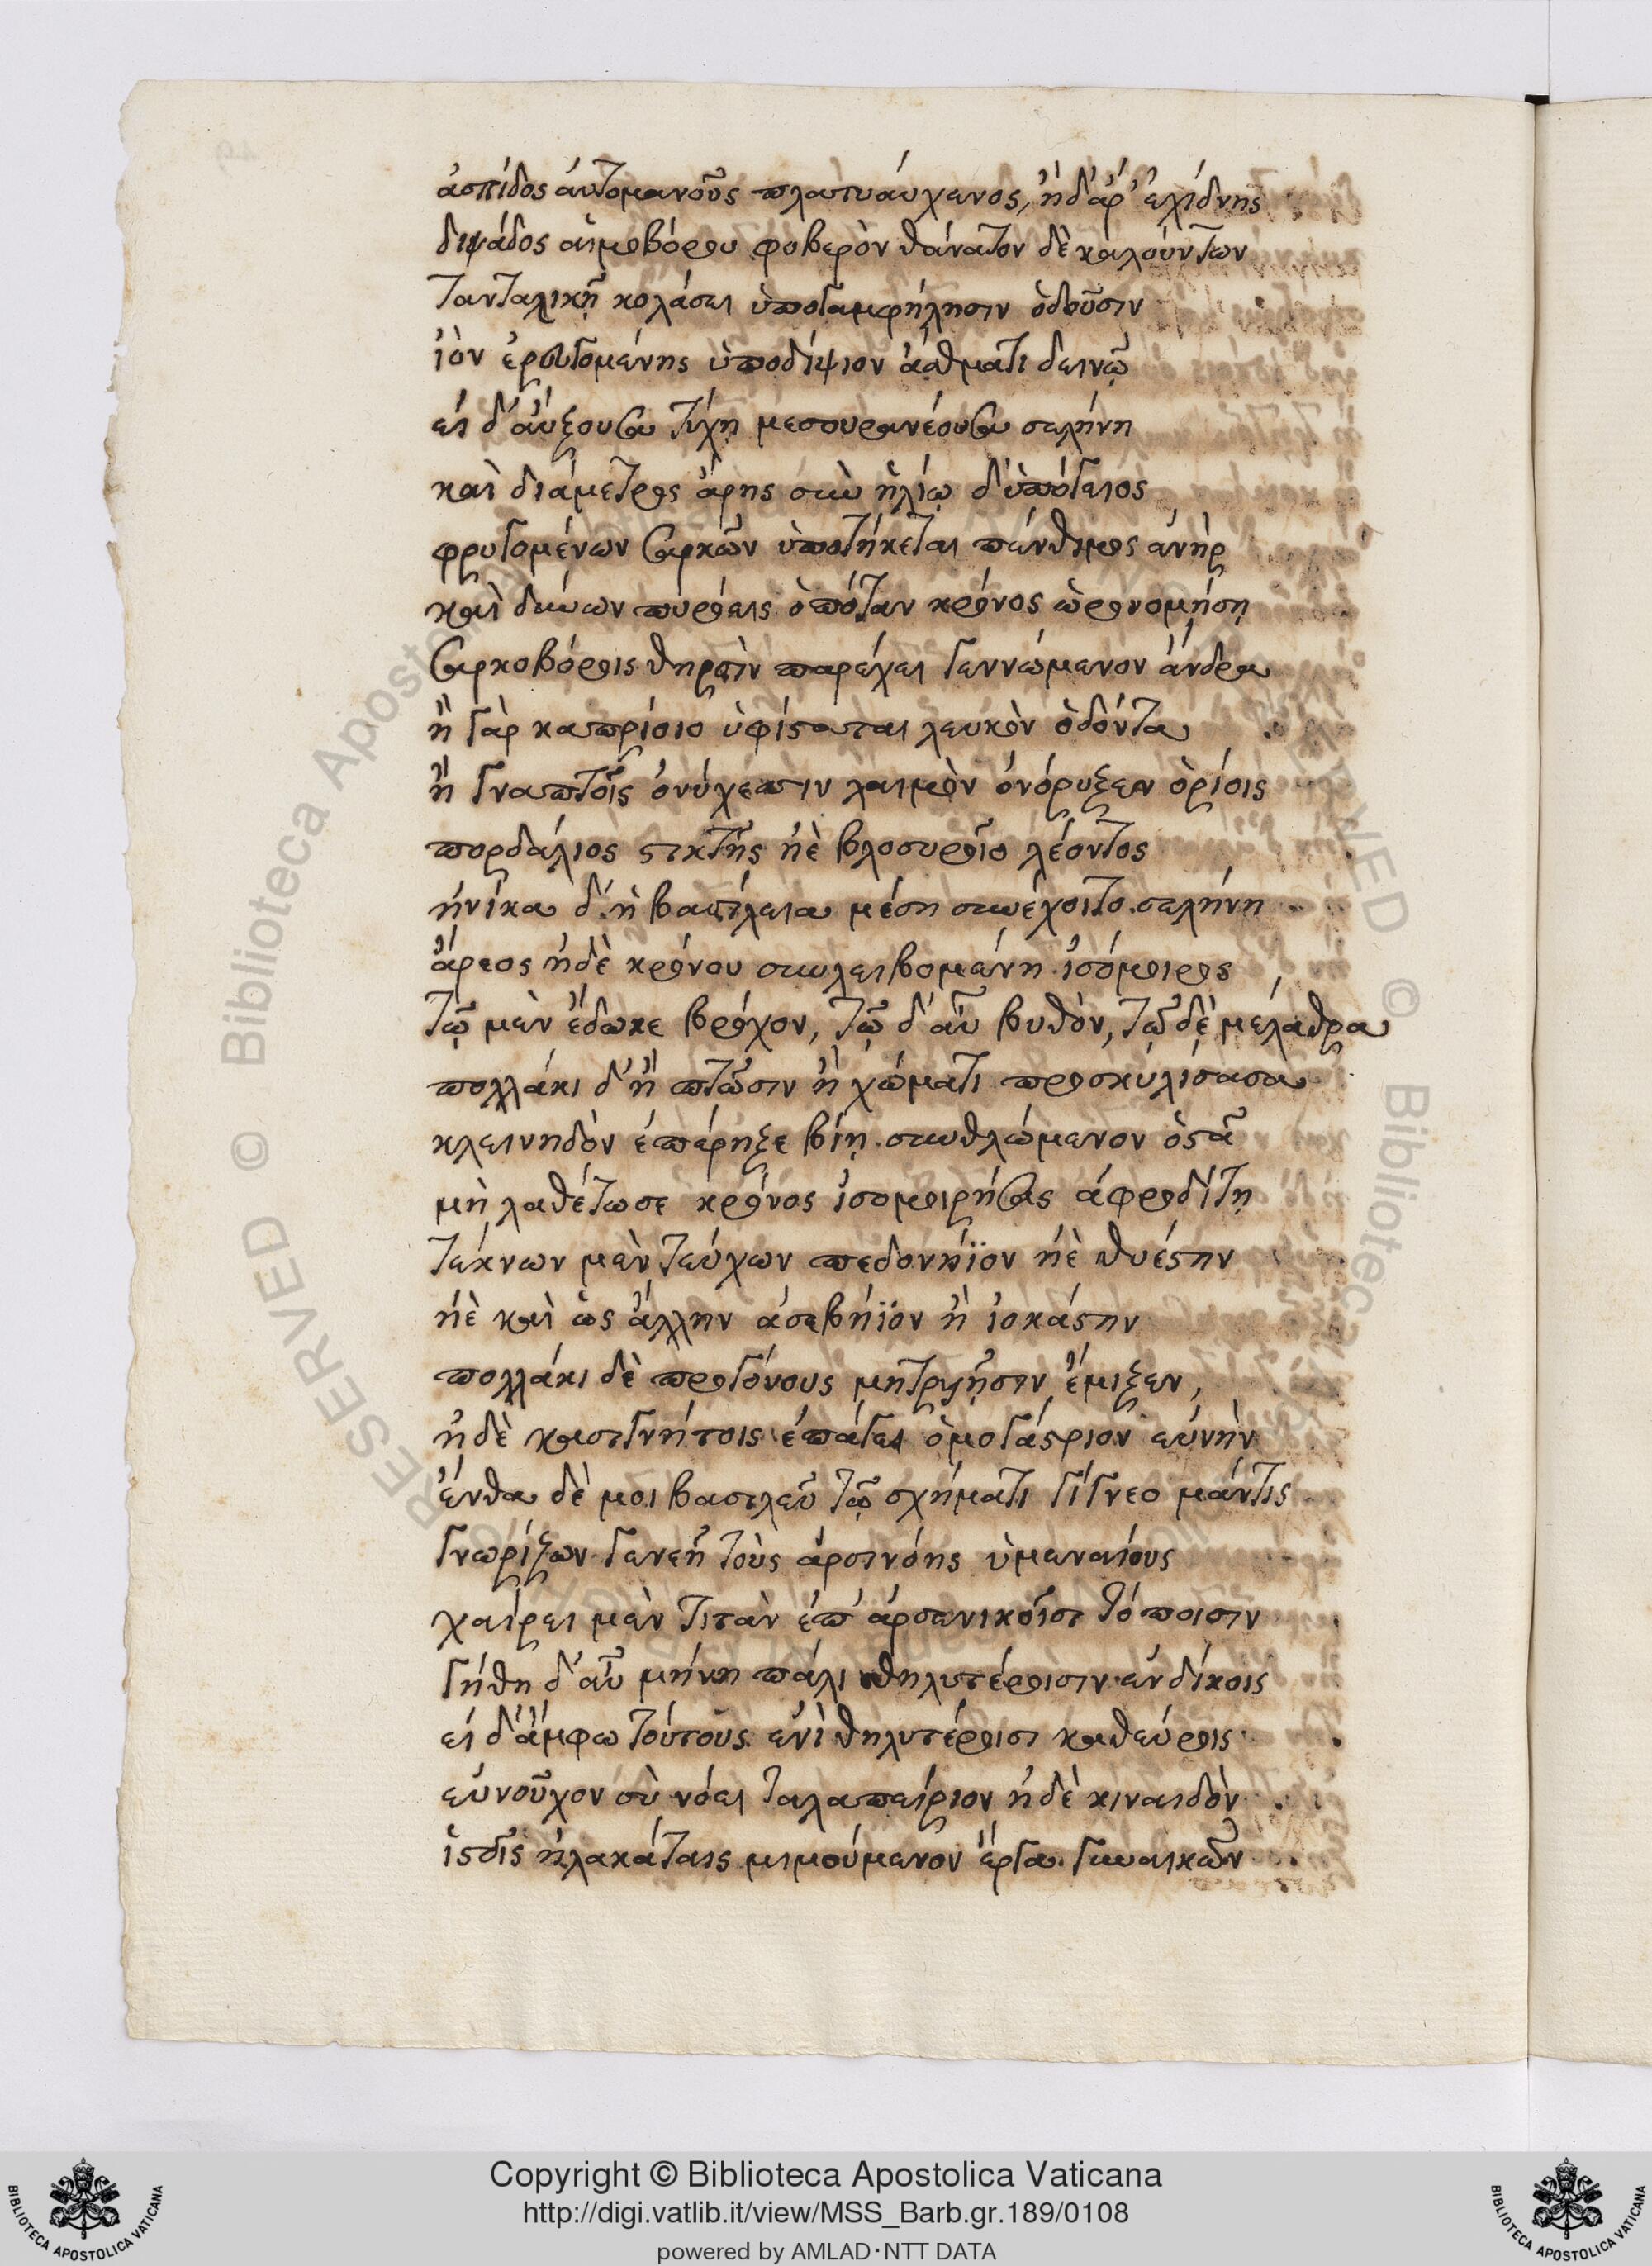 ἀσπίδος αὐτομανοῦς πλατυαύχενος, ἠδ' ἀρ' ἐχίδνης
διψάδος αἱμοβόρου φοβερὸν θάνατον δὲ καλούντων
τανταλικῇ κολάσει ὑπογαμφήλησιν ὀδοῦσιν
ἰὸν ἐρευγομένης ὑποδίψιον ἄσθματι δεινῷ
εἰ δ' αὔξουσα τύχη μεσουρανέουσα σελήνη
καὶ διάμετρος ἄρης σὺν ἡλίῳ δ' ὑπόγειος
φρυγομένων σαρκῶν ὑποτήκεται πάνθιμος ἀνὴρ
καὶ δύνων πυρόεις ὁπόταν κρόνος ὡρονομήσῃ
σαρκοβόροις θηρσὶν παρέχει γεννώμενον ἄνδρα
ἢ γὰρ καπρίοιο ὑφίσταται λευκὸν ὀδόντα
ἢ γναπτοῖς ὀνύχεσσιν λαιμὸν ὀνόρυξεν ὀρίοις
πορδάλιος στικτῆς ἠὲ βλοσυροῖο λέοντος
ἡνίκα δ' ἡ βασίλεια μέση συνέχοιτο σελήνη
ἄρεος ἠδὲ κρόνου συνλειβομένη ἰσόμοιρος
τῷ μὲν ἔδωκε βρόχον, τῷ δ' αὖ βυθὸν, τῷ δὲ μέλαθρα
πολλάκι δ' ἢ πτῶσιν ἢ χώματι προσκύλισασα
κλεινηδὸν ἐπέρηξε βίῃ συνθλώμενον ὀστᾶ
μὴ λαθέτωσε κρόνος ἰσομοιρήσας ἀφροδίτῃ
τέκνων μὲν τεύχων πεδονήϊον ἠὲ θυέστην
ἠὲ καὶ ὡς ἄλλην ἀσεβήϊον ἢ ἰοκάστην
πολλάκι δὲ προγόνους μητρυῇσιν ἔμιξεν,
ἠδὲ κασιγνήτοις ἐπάγει ὁμογάστριον εὐνὴν
ἔνθα δὲ μοι βασιλεῦ τῷ σχήματι γίγνεο μάντις
γνωρίζων γενεῇ τοὺς ἀρσινόης ὑμεναίους
χαίρει μὲν τιτὰν ἐπ' ἀρσενικοῖσι τόποισιν
γήθη δ' αὖ μήνη πάλι θηλυτέροισιν ἐνδίκοις
εἰ δ' ἄμφω τούτους ἐνὶ θηλυτέροισι καθεύροις
εὐνοῦχον σὺ νόει ταλαπείριον ἠδὲ κιναιδὸν
ἱστοῖς ἠλακάταις μιμούμενον ἔργα γυναικῶν
Copyright © Biblioteca Apostolica Vaticana
http://digi.vatlib.it/view/MSS_Barb.gr.189/0108
powered by AMLAD·NTT DATA
BIBLIOTECA APOSTOLICA VATICANA
BIBLIOTECA APOSTOLICA VATICANA